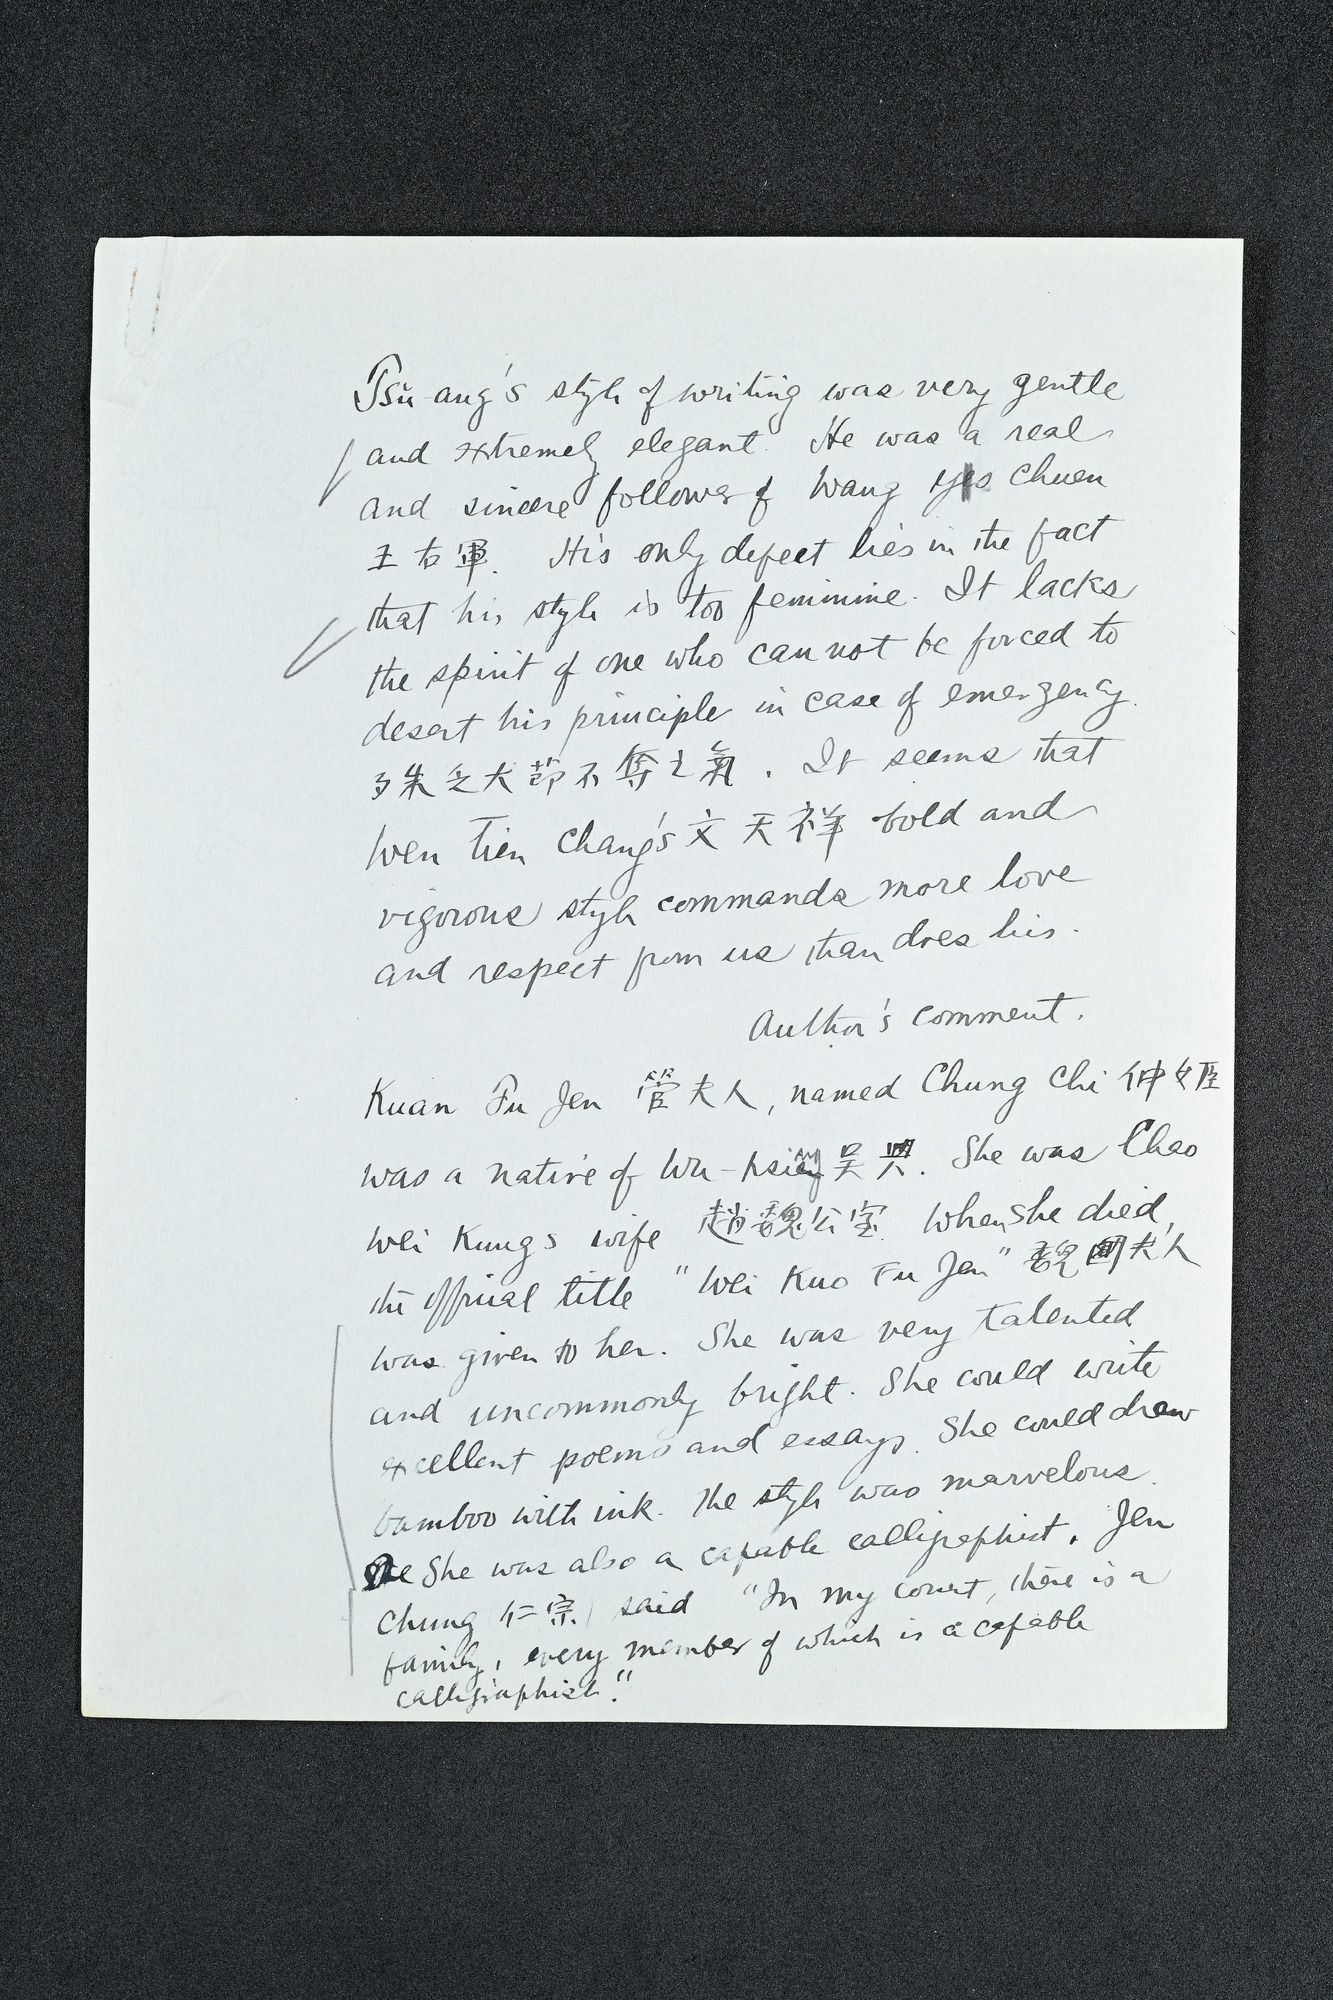 Tsŭ-ang's style of writing was very gentle
and extremely elegant. He was a real
and sincere follower of Wang Chuen
王右軍. His only defect lies in the fact
that his style is too feminine. It lacks
the spirit of one who cannot be forced to
desert his principle in case of emergency.
大節不奪之氣. It seems that
Wen Tien Chang's 文天祥 bold and
vigorous style commands more love
and respect from us than does his.
Author's comment.
Kuan Fu Jen 管夫人, named Chung Chi 仲姬
was a native of Wu-hsing 吴興. She was Chao
Wei Kung's wife 趙魏公室. When she died,
the official title "Wei Kuo Fu Jen" 魏國夫人
was given to her. She was very talented
and uncommonly bright. She could write
excellent poems and essays. She could draw
bamboo with ink. The style was marvelous.
She was also a capable calligraphist. Jen
Chung (仁宗) said "In my court, there is a
family, every member of which is a capable
calligraphist."